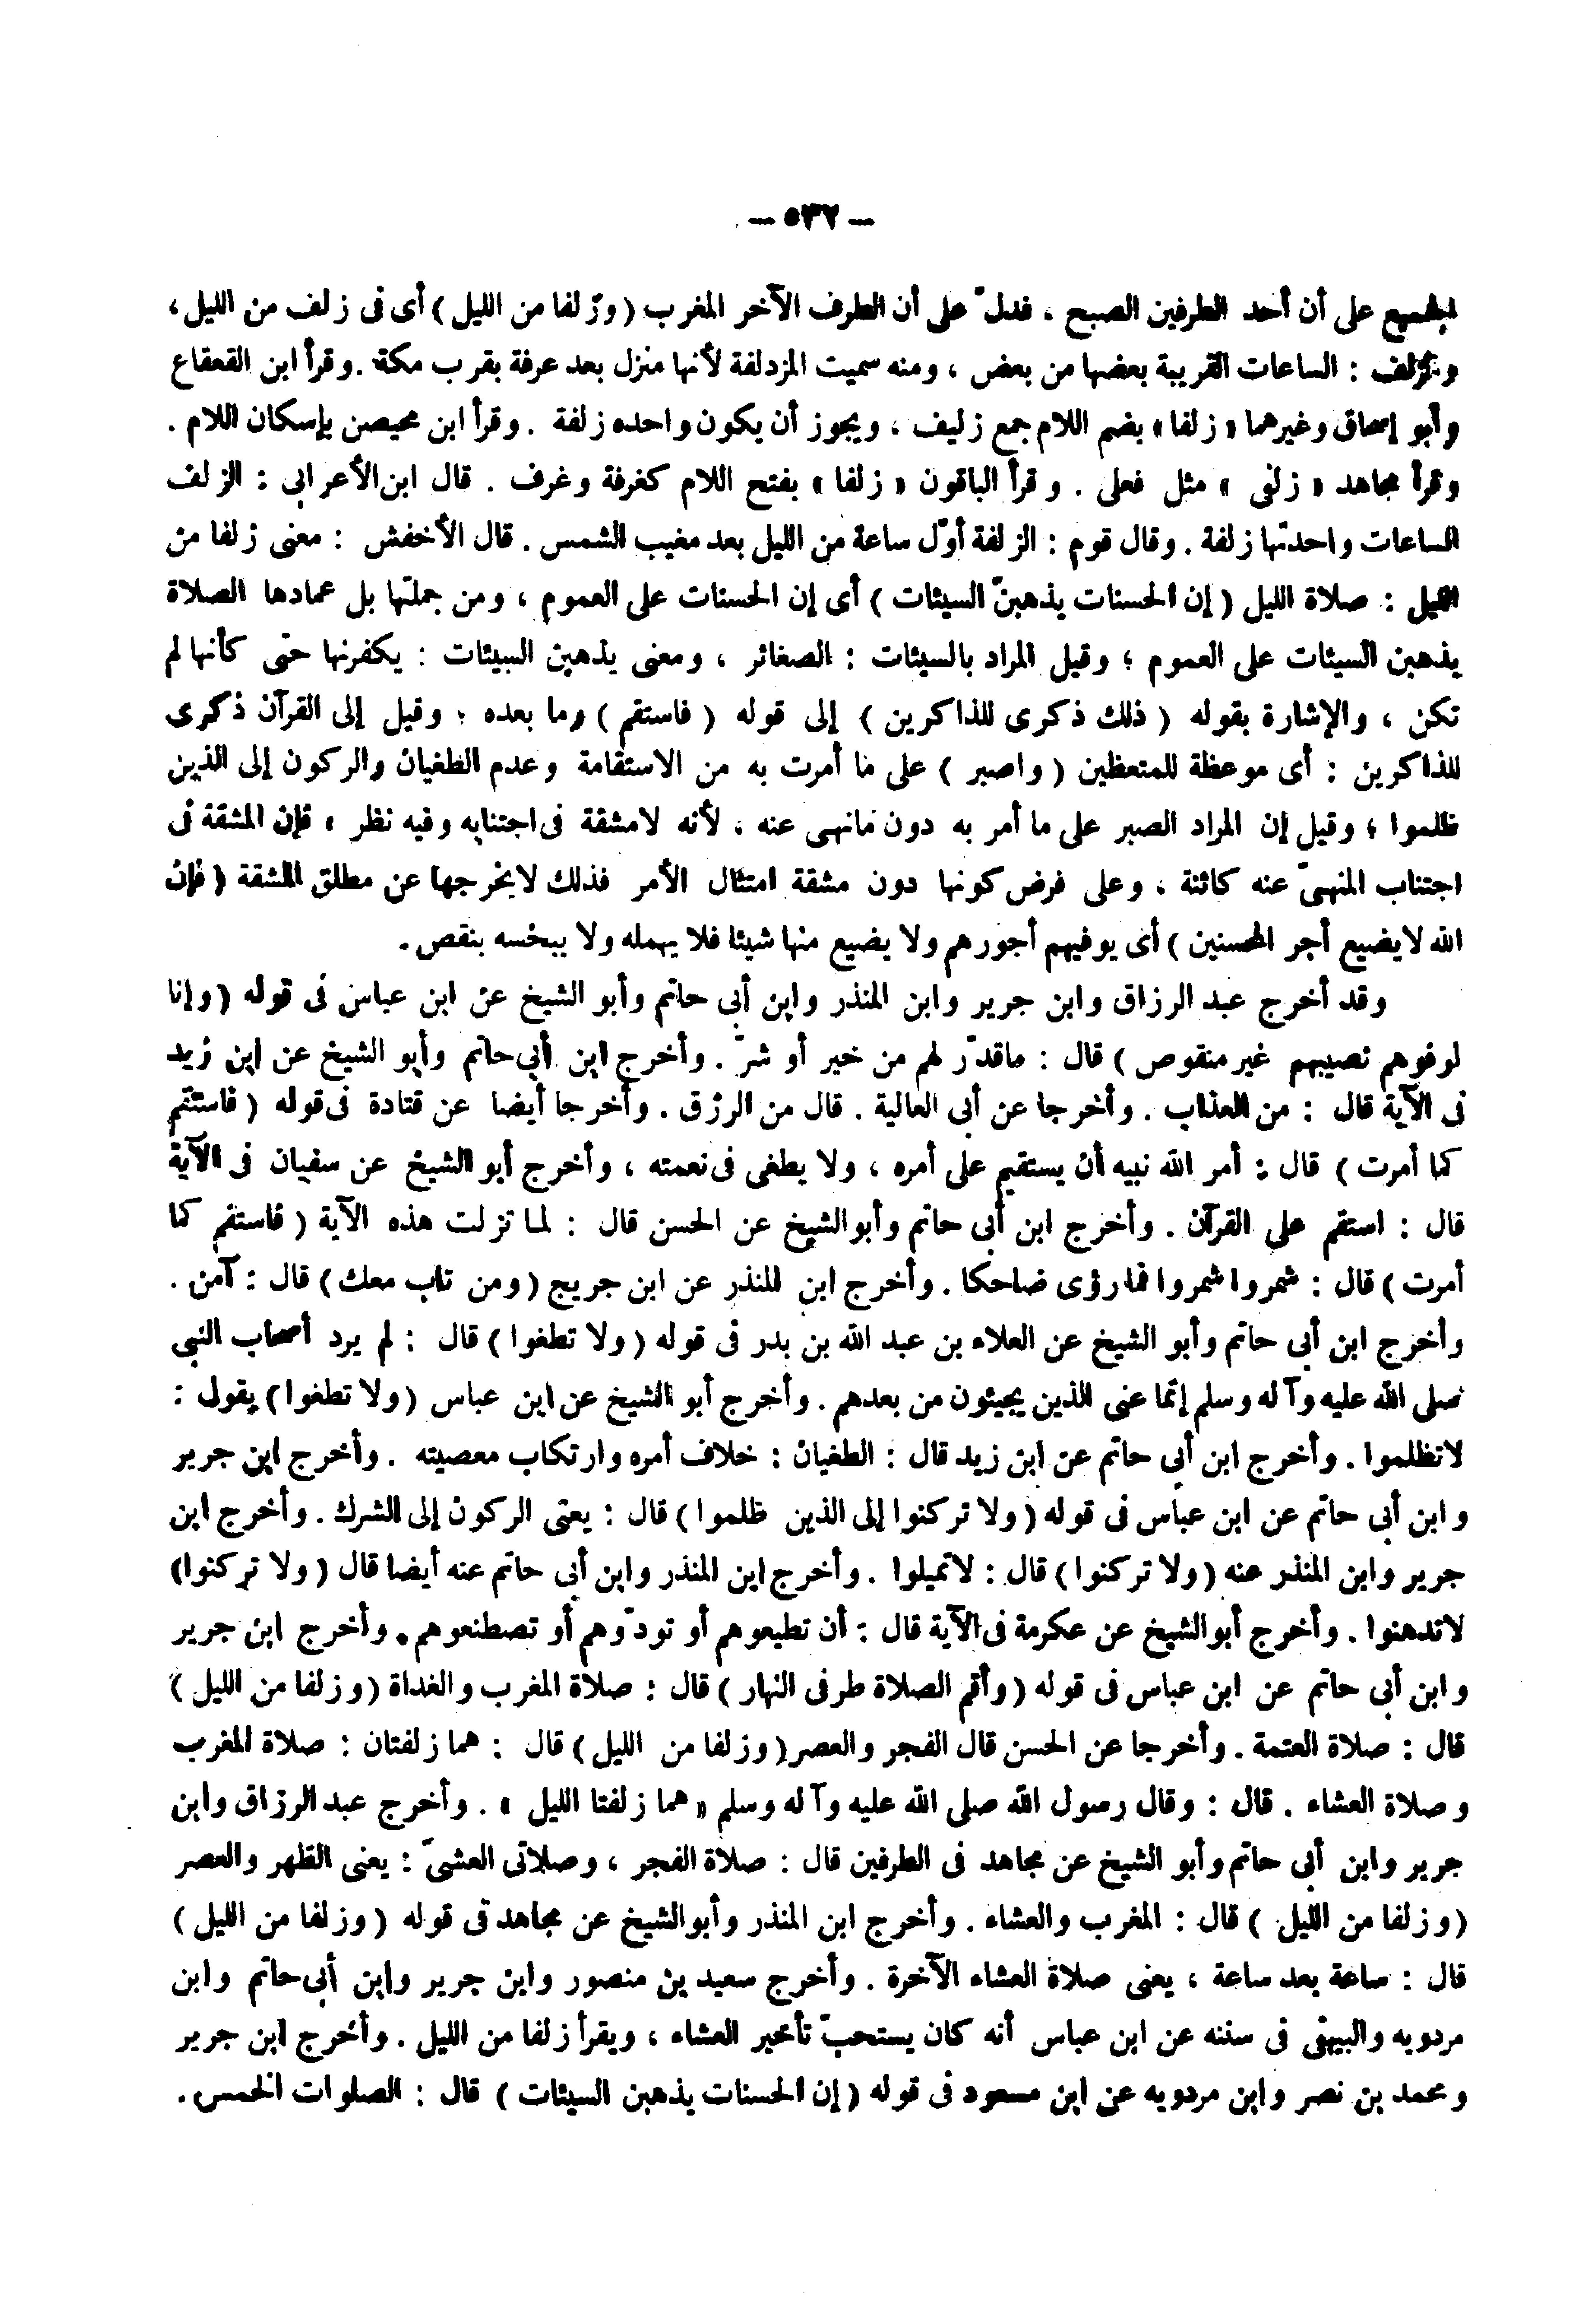 — ٥٣٢ —
الجميع على أن أحد الطرفين الصبح ، فدلّ على أن الطرف الآخر المغرب ( وزلفا من الليل ) أى فى زلف من الليل ،
والزلف : الساعات القريبة بعضها من بعض ، ومنه سميت المزدلفة لأنها منزل بعد عرفة بقرب مكة . وقرأ ابن القعقاع
وأبو إسحاق وغيرهما « زلفا » بضم اللام جمع زليف ، ويجوز أن يكون واحده زلفة . وقرأ ابن محيصن بإسكان اللام .
وقرأ مجاهد « زلفى » مثل فعلى . وقرأ الباقون « زلفا » بفتح اللام كغرفة وغرف . قال ابن الأعرابى : الزلف
الساعات واحدتها زلفة . وقال قوم : الزلفة أوّل ساعة من الليل بعد مغيب الشمس . قال الأخفش : معنى زلفا من
الليل : صلاة الليل ( إن الحسنات يذهبنّ السيئات ) أى إن الحسنات على العموم ، ومن جملتها بل عمادها الصلاة
يذهبن السيئات على العموم ؛ وقيل المراد بالسيئات : الصغائر ، ومعنى يذهبن السيئات : يكفرنها حتى كأنها لم
تكن ، والإشارة بقوله ( ذلك ذكرى للذاكرين ) إلى قوله ( فاستقم ) وما بعده ؛ وقيل إلى القرآن ذكرى
للذاكرين : أى موعظة للمتعظين ( واصبر ) على ما أمرت به من الاستقامة وعدم الطغيان والركون إلى الذين
ظلموا ؛ وقيل إن المراد الصبر على ما أمر به دون مانهى عنه ، لأنه لامشقة فى اجتنابه وفيه نظر ، فإن المشقة فى
اجتناب المنهىّ عنه كائنة ، وعلى فرض كونها دون مشقة امتثال الأمر فذلك لايخرجها عن مطلق المشقة ( فإن
الله لايضيع أجر المحسنين ) أى يوفيهم أجورهم ولا يضيع منها شيئا فلا يهمله ولا يبخسه بنقص .
وقد أخرج عبد الرزاق وابن جرير وابن المنذر وابن أبى حاتم وأبو الشيخ عن ابن عباس فى قوله ( وإنا
لموفوهم نصيبهم غير منقوص ) قال : ماقدّر لهم من خير أو شرّ . وأخرج ابن أبى حاتم وأبو الشيخ عن ابن زيد
فى الآية قال : من العذاب . وأخرجا عن أبى العالية . قال من الرزق . وأخرجا أيضا عن قتادة فى قوله ( فاستقم
كما أمرت ) قال : أمر الله نبيه أن يستقيم على أمره ، ولا يطغى فى نعمته ، وأخرج أبو الشيخ عن سفيان فى الآية
قال : استقم على القرآن . وأخرج ابن أبى حاتم وأبو الشيخ عن الحسن قال : لما نزلت هذه الآية ( فاستقم كما
أمرت ) قال : شمروا شمروا فما رؤى ضاحكا . وأخرج ابن المنذر عن ابن جريج ( ومن تاب معك ) قال : آمن .
وأخرج ابن أبى حاتم وأبو الشيخ عن العلاء بن عبد الله بن بدر فى قوله ( ولا تطغوا ) قال : لم يرد أصحاب النبى
صلى الله عليه وآله وسلم إنما عنى الذين يجيئون من بعدهم . وأخرج أبو الشيخ عن ابن عباس ( ولا تطغوا ) يقول :
لاتظلموا . وأخرج ابن أبى حاتم عن ابن زيد قال : الطغيان : خلاف أمره وارتكاب معصيته . وأخرج ابن جرير
وابن أبى حاتم عن ابن عباس فى قوله ( ولا تركنوا إلى الذين ظلموا ) قال : يعنى الركون إلى الشرك . وأخرج ابن
جرير وابن المنذر عنه ( ولا تركنوا ) قال : لاتميلوا . وأخرج ابن المنذر وابن أبى حاتم عنه أيضا قال ( ولا تركنوا )
لاتدهنوا . وأخرج أبو الشيخ عن عكرمة فى الآية قال : أن تطيعوهم أو تودّوهم أو تصطنعوهم . وأخرج ابن جرير
وابن أبى حاتم عن ابن عباس فى قوله ( وأقم الصلاة طرفى النهار ) قال : صلاة المغرب والغداة ( وزلفا من الليل )
قال : صلاة العتمة . وأخرجا عن الحسن قال الفجر والعصر ( وزلفا من الليل ) قال : هما زلفتان : صلاة المغرب
وصلاة العشاء . قال : وقال رسول الله صلى الله عليه وآله وسلم « هما زلفتا الليل » . وأخرج عبد الرزاق وابن
جرير وابن أبى حاتم وأبو الشيخ عن مجاهد فى الطرفين قال : صلاة الفجر ، وصلاتى العشىّ : يعنى الظهر والعصر
( وزلفا من الليل ) قال : المغرب والعشاء . وأخرج ابن المنذر وأبو الشيخ عن مجاهد فى قوله ( وزلفا من الليل )
قال : ساعة بعد ساعة ، يعنى صلاة العشاء الآخرة . وأخرج سعيد بن منصور وابن جرير وابن أبى حاتم وابن
مردويه والبيهقى فى سننه عن ابن عباس أنه كان يستحبّ تأخير العشاء ، ويقرأ زلفا من الليل . وأخرج ابن جرير
ومحمد بن نصر وابن مردويه عن ابن مسعود فى قوله ( إن الحسنات يذهبن السيئات ) قال : الصلوات الخمس .